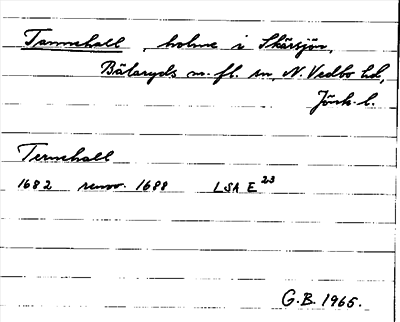 Tannehall, holme i Skärsjön,
Bälaryds m. fl. sn, N. Vedbo hd,
Jönk. l.
Ternehall
1682 renov. 1688 LSA E 23
G.B. 1965.